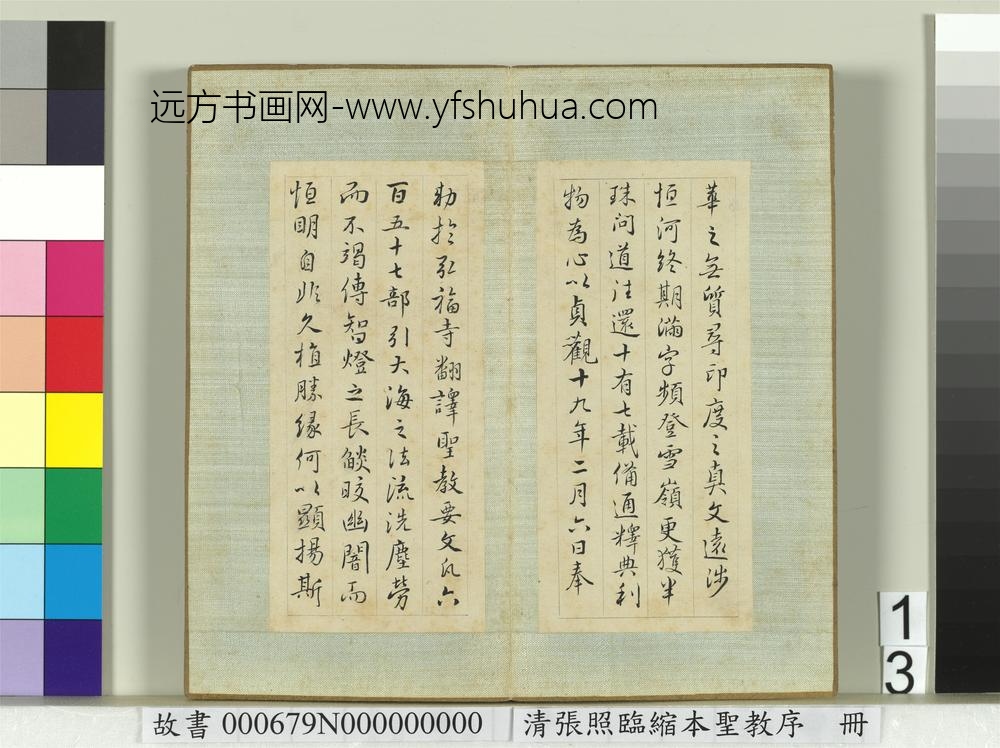 远方书画网-www.yfshuhua.com
華之無質尋印度之真文遠涉
恒河終期滿字頻登雪嶺更獲半
珠問道往還十有七載備通釋典利
物為心以貞觀十九年二月六日奉
勅於弘福寺翻譯聖教要文凡六
百五十七部引大海之法流洗塵勞
而不竭傳智燈之長焰皎幽闇而
恒明自非久植勝緣何以顯揚斯
1
3
故書 000679N000000000
清張照臨縮本聖教序 冊